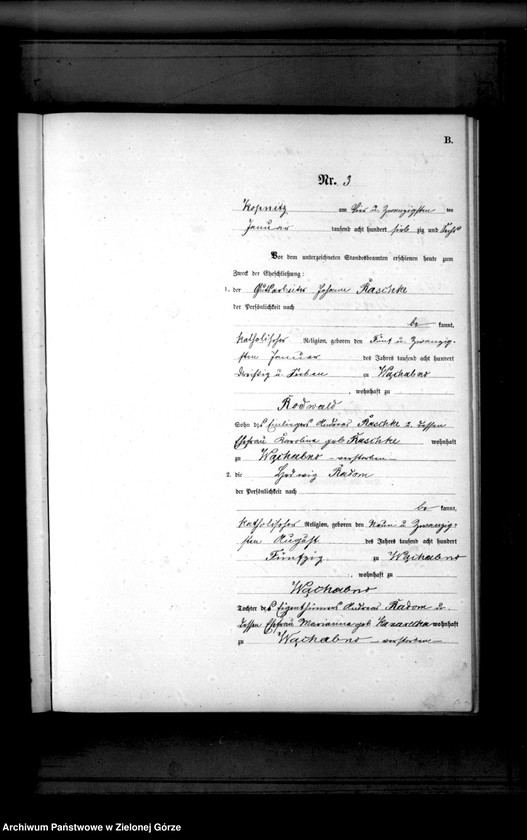 B.
Nr. 3
Kopnitz am Vier u. Zwanzigsten ten
Januar tausend acht hundert sieb zig und Sechs
Vor dem unterzeichneten Standesbeamten erschienen heute zum
Zweck der Eheschließung:
1. der Gutsarbeiter Johann Raschke
der Persönlichkeit nach
be kannt,
katholischer Religion, geboren den Fünf u. Zwanzig-
sten Januar des Jahres tausend acht hundert
Dreißig u. Sieben zu Wąchabno
, wohnhaft zu
Rodwald
Sohn des Einliegers Andreas Raschke u. dessen
Ehefrau Karolina geb. Raschke wohnhaft
zu Wąchabno - verstorben -
2. die Hedwig Radom
der Persönlichkeit nach
be kannt,
katholischer Religion, geboren den Neun u. Zwanzig-
sten August des Jahres tausend acht hundert
Fünfzig zu Wąchabno
, wohnhaft zu
Wąchabno
Tochter des Eigenthümers Andreas Radom u.
dessen Ehefrau Marianna geb. wohnhaft
zu Wąchabno - verstorben -
Archiwum Państwowe w Zielonej Górze